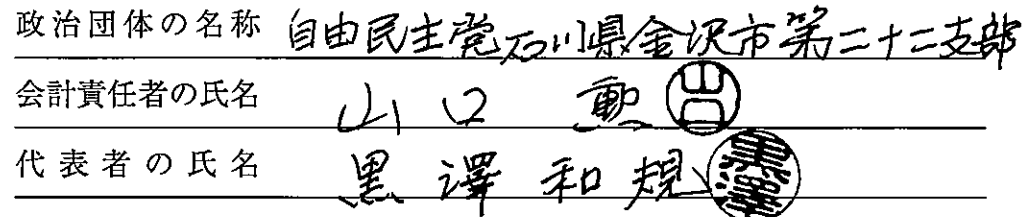 政治団体の名称 自由民主党石川県金沢市第二十二支部
会計責任者の氏名 山口 勲 山口
代表者の氏名 黒澤和規 黒澤